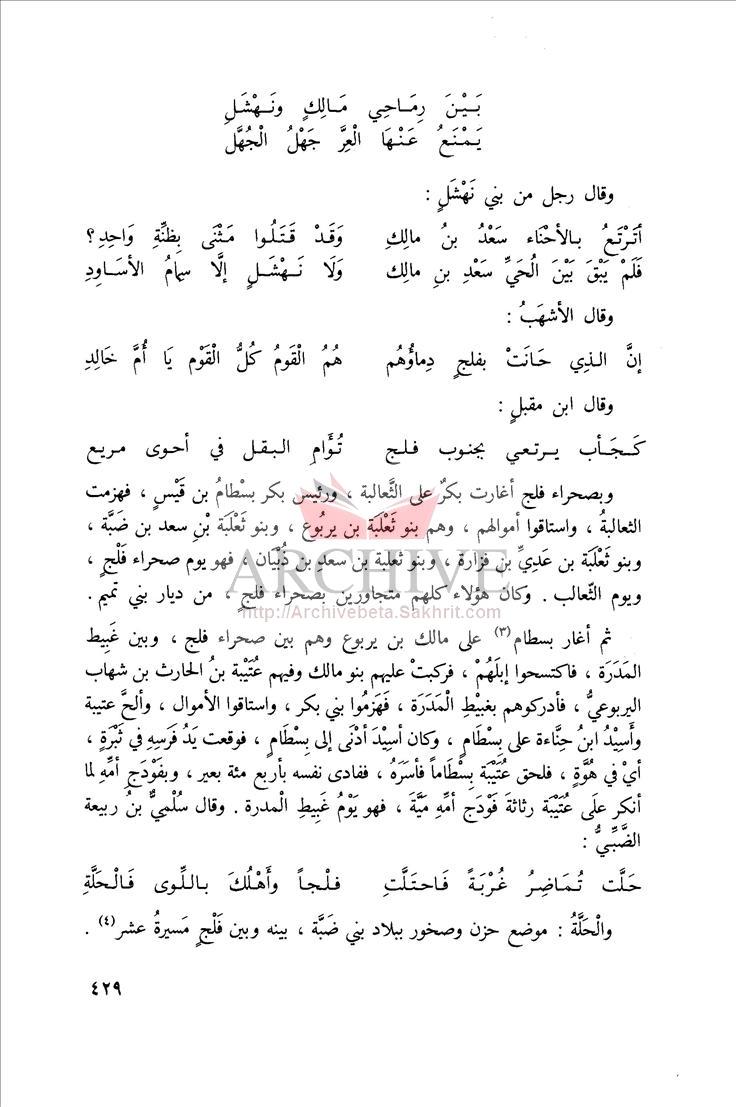 بَـيْـنَ رِمَـاحِي مَـالِكٍ ونَـهْـشَـلِ
يَـمْـنَـعُ عَـنْـهَا الْعِرَّ جَهْلُ الْجُهَّلِ
وقال رجل من بني نَهْشَلٍ :
أتَـرْتَـعُ بـالأحْنَاء سَعْدُ بنُ مالكٍ وَقَـدْ قَـتَـلُـوا مَـثْنَى بِظِنَّةِ وَاحِدِ ؟
فَلَمْ يَبْقَ بَيْنَ الْحَيِّ سَعْدِ بنِ مالك وَلَا نَـهْـشَـلٍ إلَّا سِمَامُ الأسَـاوِدِ
وقال الأشهَبُ :
إنَّ الـذِي حَـانَتْ بفلجٍ دِماؤُهُم هُمُ الْقَومُ كُلُّ الْقَوْمِ يَا أُمَّ خَالِدِ
وقال ابن مقبلٍ :
كَـجَـأب يـرتـعي بجنوب فـلـج تُـؤَامِ الـبـقـل في أحوى مـريـع
وبصحراء فلج أغارت بكرٌ على الثَّعالبة ، ورئيس بكر بسْطامُ بن قَيْس ، فهزمت
الثعالبةُ ، واستاقوا أموالهم ، وهم بنو ثَعْلَبَة بن يربُوع ، وبنو ثَعْلَبَة بْنِ سعد بن ضَبَّة ،
وبنو ثَعْلَبَة بن عَدِيِّ بن فزارة ، وبنو ثعلبة بن سعدِ بن ذُبْيَان ، فهو يوم صحراء فَلْجٍ ،
ويوم الثّعالب . وكان هؤلاء كلهم متجاورين بصحراء فلجٍ ، من ديار بني تميم .
ARCHIVE
http://Archivebeta.Sakhrit.com
ثم أغار بسطام(٣) على مالك بن يربوع وهم بين صحراء فلج ، وبين غَبِيط
المَدَرَة ، فاكتسحوا إبلَهُمْ ، فركبتْ عليهم بنو مالك وفيهم عُتَيْبة بنُ الحارث بن شهاب
اليربوعيُّ ، فأدركوهم بغَبيْطِ الْمَدَرَة ، فَهَزمُوا بني بكر ، واستاقوا الأموال ، وألحَّ عتيبة
وأَسِيْدُ ابنُ حِنَّاءة على بِسْطَامٍ ، وكان أسِيْدَ أدْنَى إلى بِسْطَامٍ ، فوقعت يَدُ فَرَسِهِ في ثَبْرَةٍ ،
أيْ في هُوَّةٍ ، فلحق عُتَيْبَة بِسْطَاماً فأسَرَهُ ، ففادى نفسه بأربع مئة بعير ، وبفَوْدَجِ أمِّهِ لما
أنكر علَى عُتَيْبَة رثاثة فَوْدَج أمِّهِ مَيَّةَ ، فهو يَوْمُ غَبِيطِ الْمدرة . وقال سُلْمِيُّ بنُ ربيعة
الضَّبِّيُّ :
حَـلَّت تُـمَاضِـرُ غُرْبَـةً فَـاحتَلَّتِ فـلـجـاً وأهْـلُكَ بـالـلِّوى فَـالْحَلَّةِ
والْحَلَّةُ : موضع حزن وصخور ببلاد بني ضَبَّة ، بينه وبين فَلْجٍ مَسيرةُ عشر(٤) .
٤٢٩